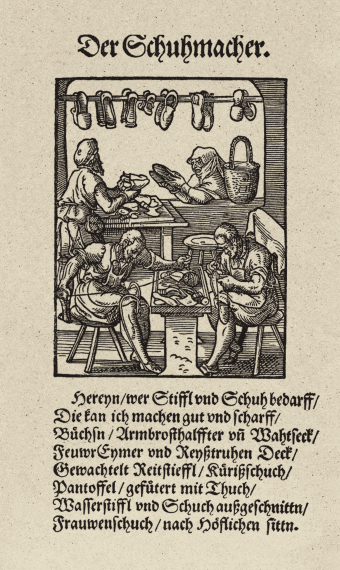 Der Schuhmacher.
Hereyn/wer Stiffl vnd Schuh bedarff/
Die kan ich machen gut vnd scharff/
Büchsn/ Armbrosthalffter vñ Wahtseck/
FeuwrEymer vnd Reyßtruhen Deck/
Gewachtelt Reitstieffl/ Kürißschuch/
Pantoffel/ gefütert mit Thuch/
Wasserstiffl vnd Schuch außgeschnittn/
Frauwenschuch/ nach Höflichen sittn.